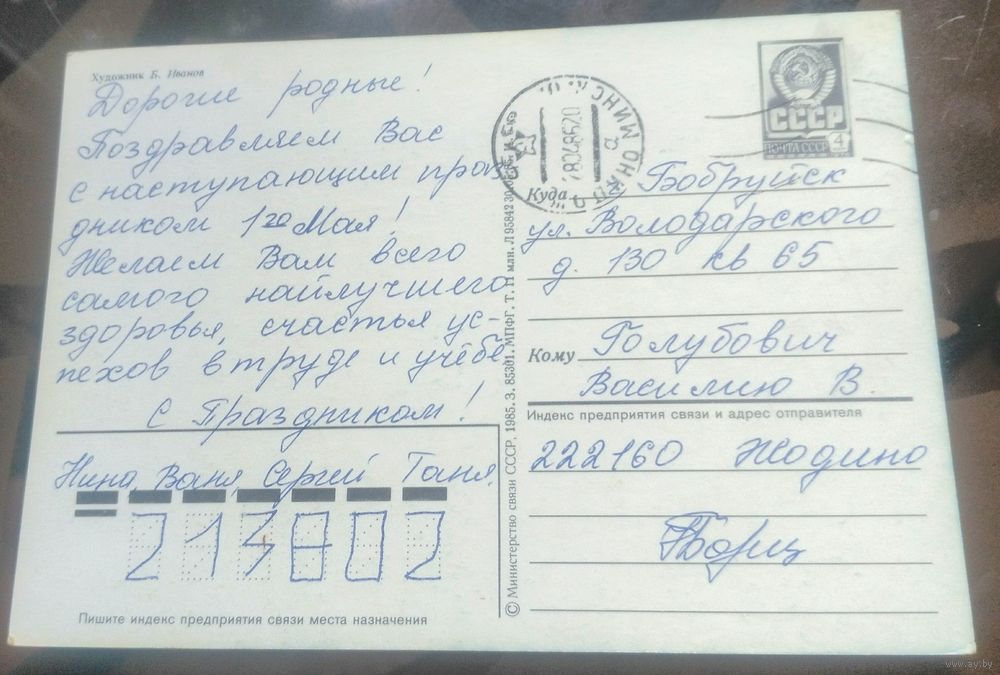 Художник Б. Иванов
Дорогие родные!
Поздравляем Вас
с наступающим праз-
дником 1го Мая!
Желаем Вам всего
самого найлучшего
здоровья, счастья ус-
пехов в труде и учёбе
С Праздником!
Нина, Ваня, Сергей Таня.
213802
Пишите индекс предприятия связи места назначения
© Министерство связи СССР, 1985. З. 85301. МПФГ. Т. 11 млн. Л 95842 30.05.85.
СССР
ПОЧТА СССР 4
Куда г. Бобруйск
ул. Володарского
д. 130 кв 65
Кому Голубович
Василию В.
Индекс предприятия связи и адрес отправителя
222160 Жодино
www.ay.by